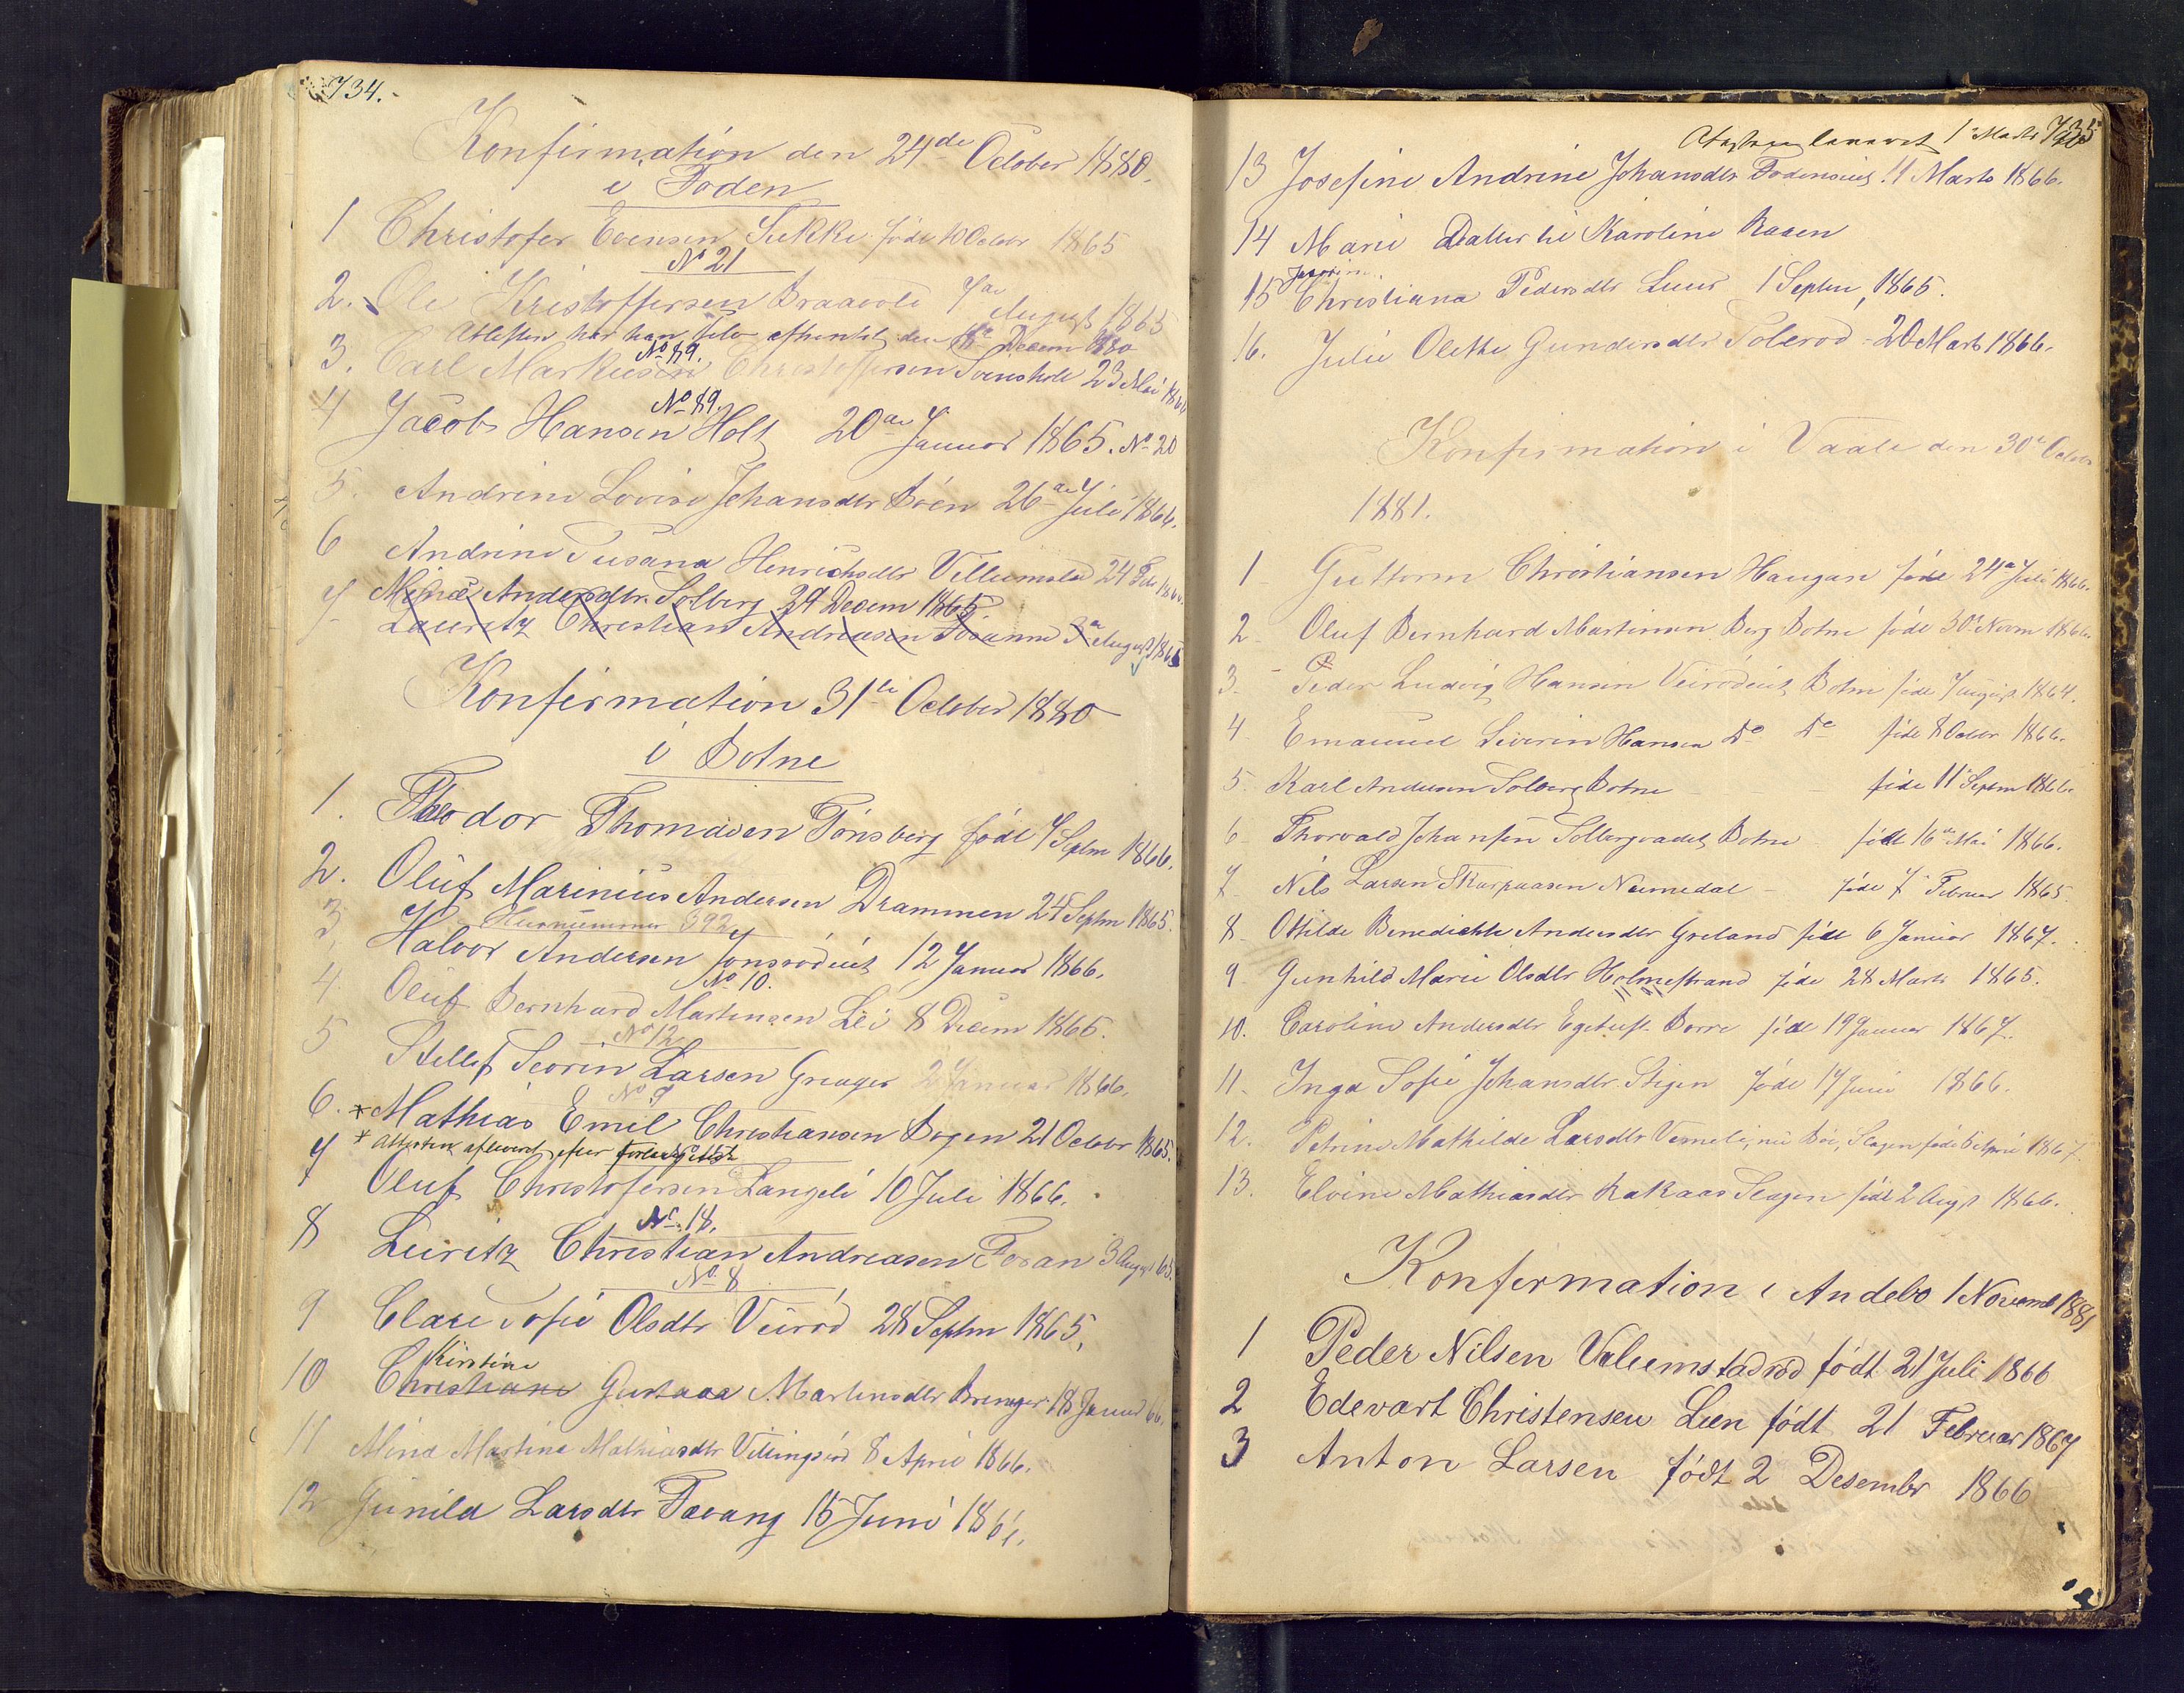 734.
Konfirmation den 24de October 1880.
i Foden
1 Christofer Evensen Sukke føde 10 Octobr 1865
No 21
2. Ole Kristoffersen Braavold 7de August 1865
Attesten har han selv afhentet den Decem 1880
No 89.
3. Carl Markusen Christoffersen 23 Mai 1866
No 89.
4 Jacob Hansen Holt 20de Januar 1865. No 20
5. Andrine Lovise Johansdtr Bøen 26de Juli 1866.
6 Andrine Susana Henrichsdtr 24 Feb
7 Andersdtr. Solberg 29 Decem 1865.
Lauritz Christian Andreasen 3de August 1865
Konfirmation 31te October 1880
i Botne
1. Theodor Thomasen Tønsberg født 7 Septm 1866.
2. Oluf Marinius Andersen Drammen 24 Septm 1865.
Husnummer 392
3. Halvor Andersen Jonsrødeiet 12 Januar 1866.
No 10.
4. Oluf Bernhard Martinsen Lei 8 Decem 1865.
No 12
5 Stellef Severin Larsen Greager 2 Januar 1866.
No 9
6. * Mathias Emil Christiansen Bogen 21 Octobr 1865.
* Attesten afleverd efter
7 Oluf Christofersen Langelé 10 Juli 1866.
No. 18.
8 Luritz Christian Andreasen Foran 3 August 65.
No. 8
9 Clare Sofie Olsdtr Veirød 28 Septm 1865.
Kirstine
10 Christiane Gustava Martinsdtr 18 Januar 66.
11 Mina Martine Mathiasdtr 8 April 1866.
12 Gunild Larsdtr Tavang 15 Juni 1866.
735
1 Marts
13 Josefine Andrine Johansdtr Fodenseiet 11 Marts 1866.
14 Marie Datter til Karoline Raaen
15 Christiana Pedersdtr 1 Septm 1865.
16. Julie Olethe Gundersdtr Solerød 20 Marts 1866.
Konfirmation i Vaale den 30te Octobr
1881.
1 Guttorm Christiansen Haugan føde 24de Juli 1866.
2 Oluf Bernhard Martinsen Berg Botne føde 30te Novm 1866.
3 Peder Ludvig Hansen Veirødeiet Botne føde 7 August 1864.
4 Emanuel Severin Hansen Do Do føde 8 Octobr 1866.
5. Karl Andersen Solberg Botne føde 11te Septm 1866.
6 Thorvald Johansen Solbergvadet, Botne født 16de Mai 1866.
7 Nils Larsen Skarpaasen Numedal føde 7de Februar 1865.
8 Othilde Benedichte Andersdtr Greland født 6 Januar 1867.
9 Gunhild Marie Olsdtr Holmestrand føde 28 Marts 1865.
10. Caroline Andersdtr Borre føde 19 Januar 1867.
11. Inga Sofie Johansdtr. Stigen føde 17 Juni 1866.
12. Petrine Mathilde Larsdtr Slagen føde 6 April 1867.
13. Elvine Mathiasdtr Rakaas Slagen født 2 Augst 1866.
Konfirmation i Andebo 1 Novembr 1881
1 Peder Nilsen Vileemstadrød født 21 Juli 1866
2 Edevart Christensen Lien født 21 Februar 1867
3 Anton Larsen født 2 Desembr 1866